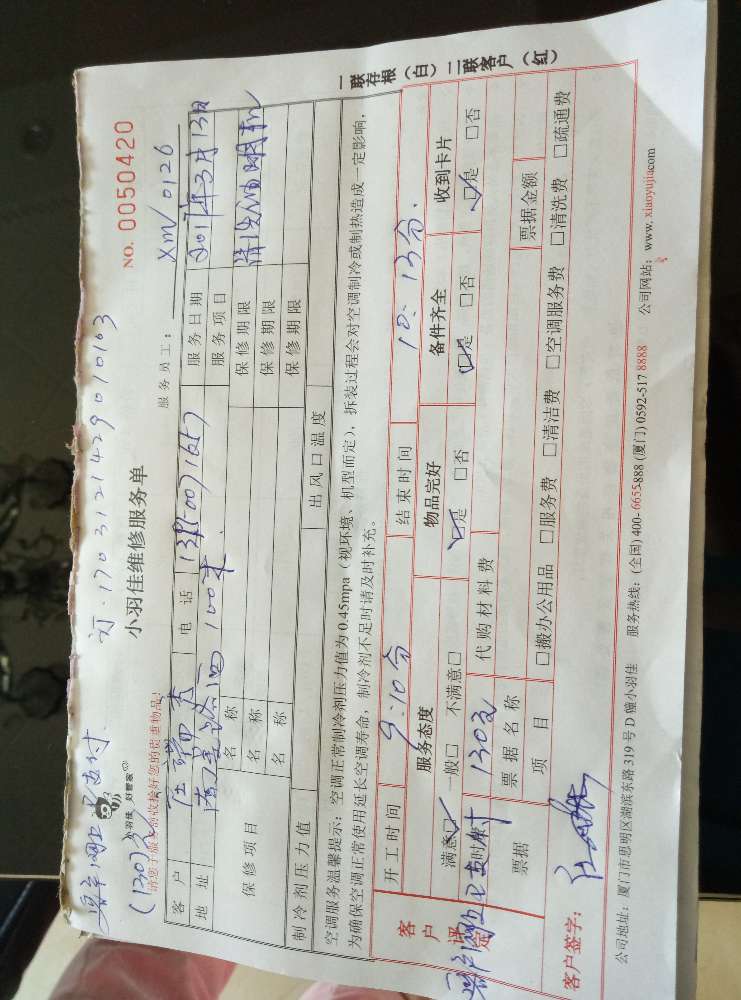 订·1703121429010163
客户网上已支付
(130元)
小羽佳 好管家
小羽佳维修服务单
NO. 0050420
请您于服务前收捡好您的贵重物品!
服务员工: XM/0126
客户 电话 服务日期 2017年3月13日
地址 100米 服务项目 清洗油烟机
保修项目 名称 保修期限
名称 保修期限
名称 保修期限
制冷剂压力值 出风口温度
空调服务温馨提示:空调正常制冷剂压力值为0.45mpa(视环境、机型而定),拆装过程会对空调制冷或制热造成一定影响,
为确保空调正常使用延长空调寿命,制冷剂不足时请及时补充。
一联存根(白)二联客户(红)
开工时间 9:10分 结束时间 10:13分.
客户评定 服务态度 物品完好 备件齐全 收到卡片
满意☑ 一般□ 不满意□ ☑是 □否 ☑是 □否 ☑是 □否
130元 代购材料费
票据 票据名称 票据金额
项目 □搬办公用品 □服务费 □清洁费 □空调服务费 □清洗费 □疏通费
客户签字:
公司地址:厦门市思明区湖滨东路319号D幢小羽佳 服务热线:(全国)400-6655-888 (厦门)0592-517 8888 公司网站:www.xiaoyujia.com